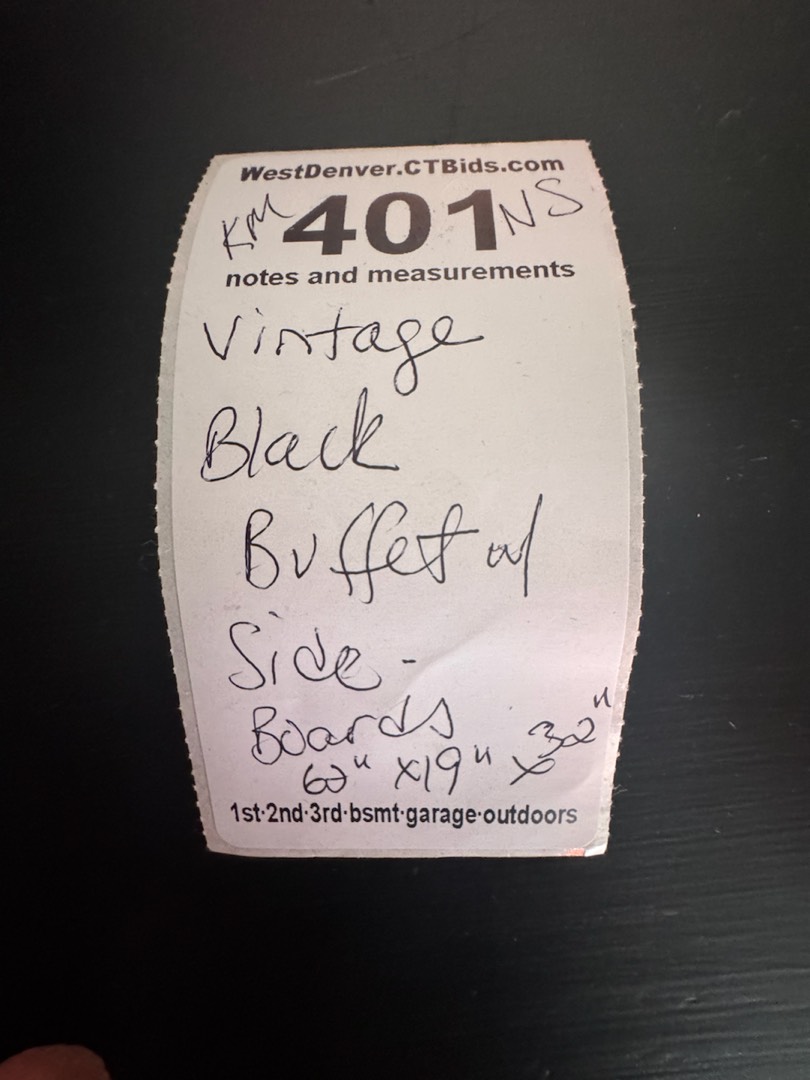 WestDenver.CTBids.com
KM 401 NS
notes and measurements
Vintage
Black
Buffet w/
Side-
Boards
62" x19" x 32"
1st·2nd·3rd·bsmt·garage·outdoors